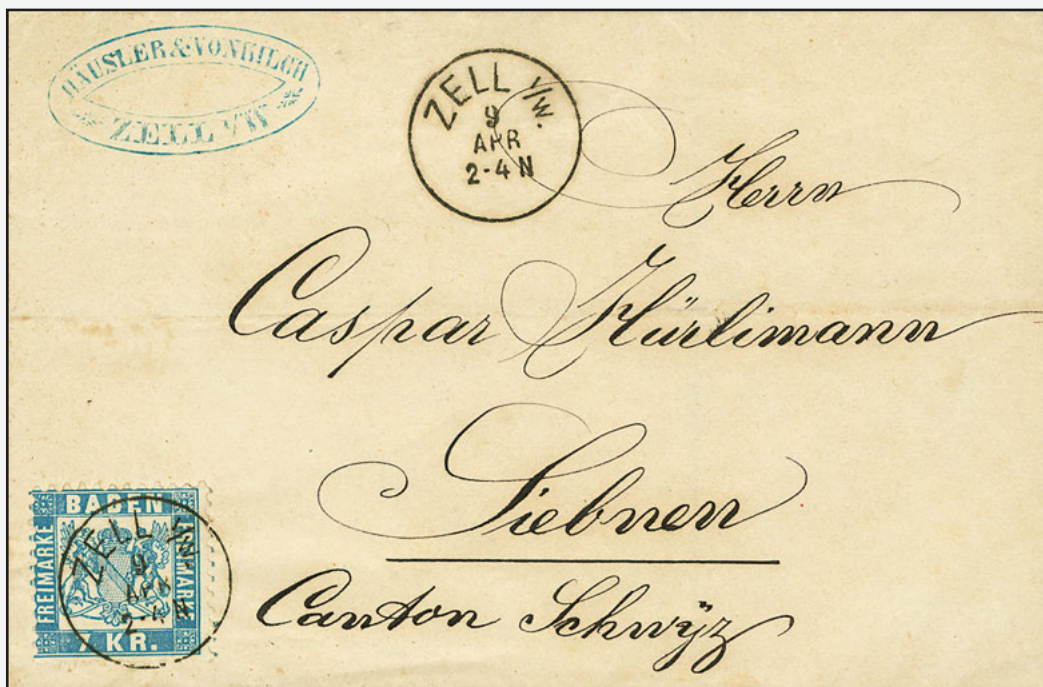 HÄUSLER & VONKILCH
ZELL i/W
ZELL i/W.
9
APR
2-4 N
Herrn
Caspar Hürlimann
Siebnen
Canton Schwÿz
BADEN
FREIMARKE
FREIMARKE
7 KR.
ZELL i/W.
9
APR
2-4 N